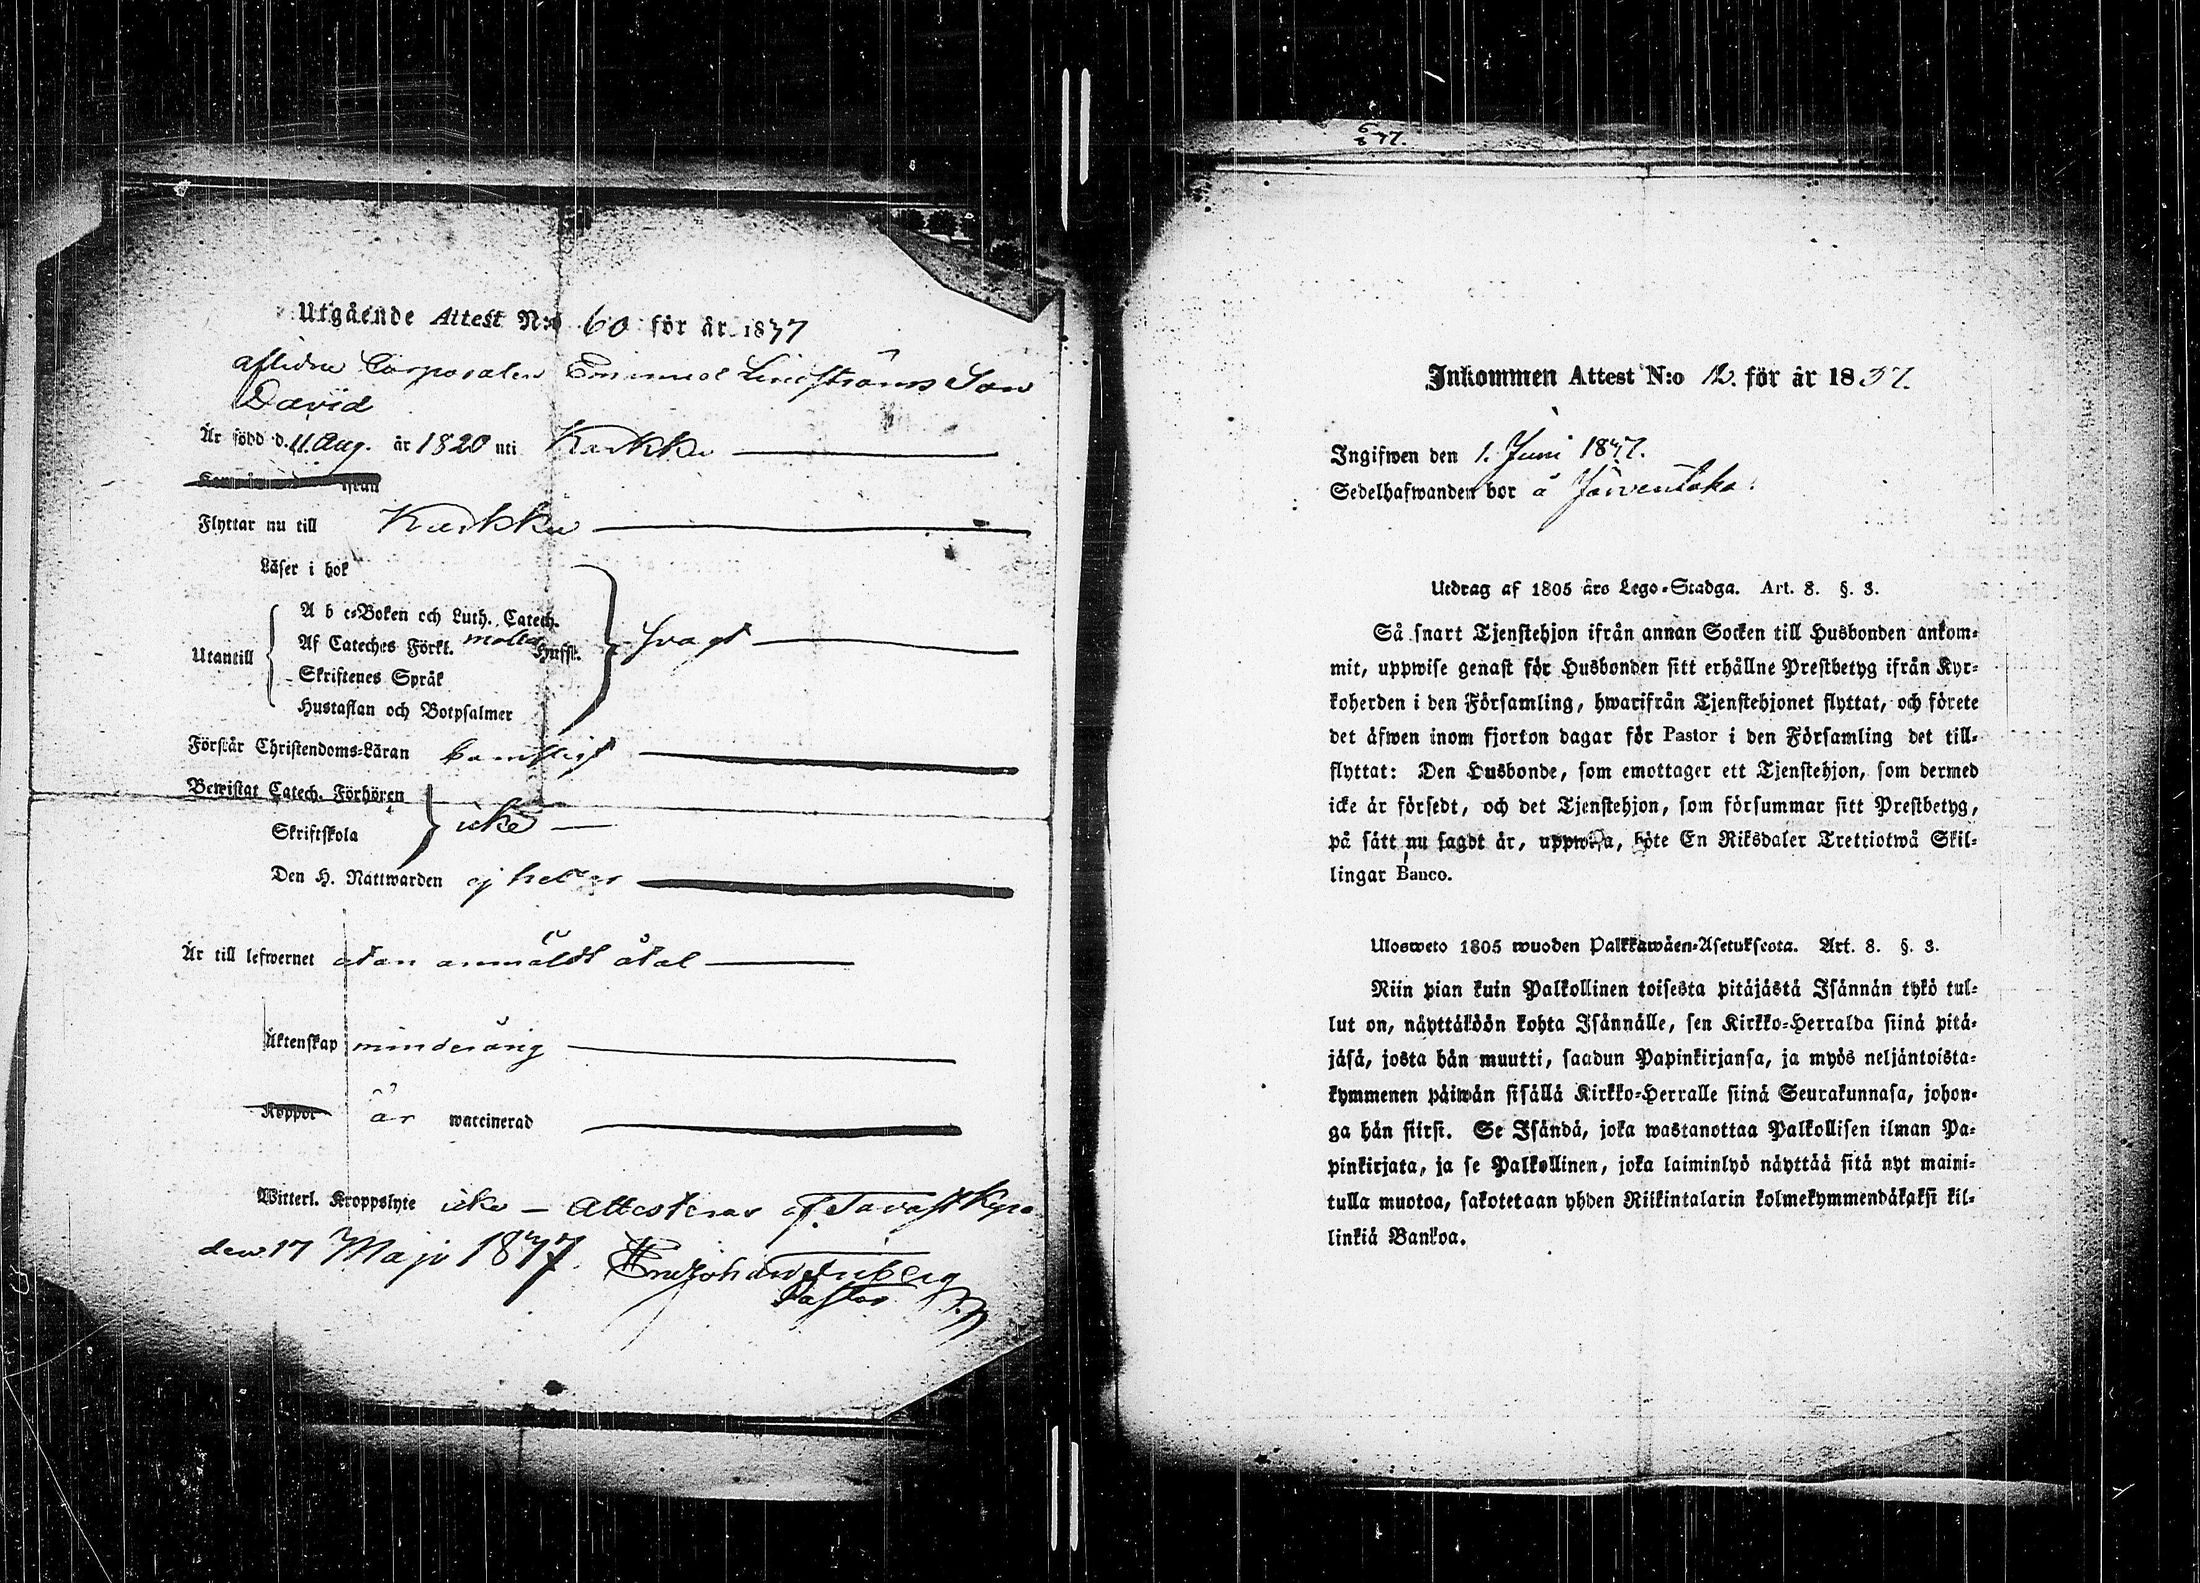 Utgående Attest N:o 60 för år 1837
aflidne Corporalen Emanuel Lindströms Son
David
Är född d. 11. Aug. år 1820 uti Karkku
ifrån
Flyttar nu till Karkku
Läser i bok
A b c-Boken och Luth. Catech.
Utantill Af Cateches Förkl. Hufst. svagt
Skriftenes Språk
Hustaflan och Botpsalmer
Förstår Christendoms-Läran
Bewistat Catech. Förhören
icke
Skriftskola
Den H. Nattwarden ej heller
Är till lefwernet utan anmäldt åtal
Äktenskap minderårig
Koppor är waccinerad
Witterl. Kroppslyte icke — Attesterar af Tavastkyro
den 17 Maji 1837.
Pastor
6/8 37.
Inkommen Attest N:o 12. för år 1837.
Ingifwen den 1. Juni 1837.
Sedelhafwanden bor å Järventaka.
Utdrag af 1805 års Lego-Stadga. Art. 8. §. 3.
Så snart Tjenstehjon ifrån annan Socken till Husbonden ankom-
mit, uppwise genast för Husbonden sitt erhållne Prestbetyg ifrån Kyr-
koherden i den Församling, hwarifrån Tjenstehjonet flyttat, och förete
det äfwen inom fjorton dagar för Pastor i den Församling det till-
flyttat: Den Husbonde, som emottager ett Tjenstehjon, som dermed
icke är försedt, och det Tjenstehjon, som försummar sitt Prestbetyg,
på sätt nu sagdt är, uppwisa, böte En Riksdaler Trettiotwå Skil-
lingar Banco.
Ulosweto 1805 wuoden Palkkawäen-Asetuksesta. Art. 8. §. 3.
Niin pian kuin Palkollinen toisesta pitäjästä Isännän tykö tul-
lut on, näyttäköön kohta Isännälle, sen Kirkko-Herralda siinä pitä-
jäsä, josta hän muutti, saadun Papinkirjansa, ja myös neljäntoista-
kymmenen päiwän sisällä Kirkko-Herralle siinä Seurakunnasa, johon-
ga hän siirsi. Se Isändä, joka wastanottaa Palkollisen ilman Pa-
pinkirjata, ja se Palkollinen, joka laiminlyö näyttää sitä nyt maini-
tulla muotoa, sakotetaan yhden Riikintalarin kolmekymmendäkaksi kil-
linkiä Bankoa.